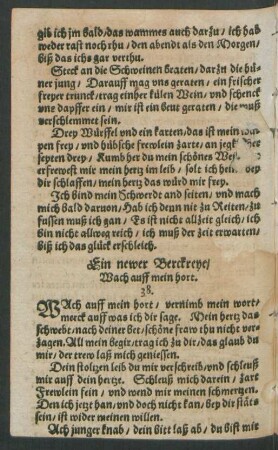 gib ich jm bald/das wammes auch darzu/ich hab
weder rast noch rhu/den abendt als den Morgen/
biß das ichs gar verthu.
Steck an die Schweinen braten/darzu die hü-
ner jung/Darauff mag vns geraten/ein frischer
freyer trunck/trag einher külen Wein/vnd schenck
vns dapffer ein/mir ist ein beut geraten/die muß
verschlemmet sein.
Drey Würffel vnd ein karten/das ist mein
pen frey/vnd hübsche frewlein zarte/an jeg
seyten drey/Kumb her du mein schönes
erfrewest mir mein hertz im leib/sole ich hein bey
dir schlaffen/mein hertz das würd mir frey.
Ich bind mein Schwerdt and seiten/vnd mach
mich bald daruon/Hab ich denn nit zu Reiten/zu
fussen muß ich gan/Es ist nicht allzeit gleich/ich
bin nicht allweg reich/ich muß der zeit erwarten/
biß ich das glück erschleich.
Ein newer Berckreye/
Wach auff mein hort.
38.
WAch auff mein hort/vernimb mein wort/
merck auff was ich dir sage. Mein hertz das
schwebt/nach deiner bet/schöne fraw thu nicht ver-
zagen. All mein begir/trag ich zu dir/das glaub du
mir/der trew laß mich geniessen.
Dein stoltzen leib du mir verschreib/vnd schleuß
mir auff dein hertze. Schleuß mich darein/zart
Frewlein fein/vnd wend mir meinen schmertzen.
Den ich jetz han/vnd doch nicht kan/bey dir stät-
sein/ist wider meinen willen.
Ach junger knab/dein bitt laß ab/du bist mir